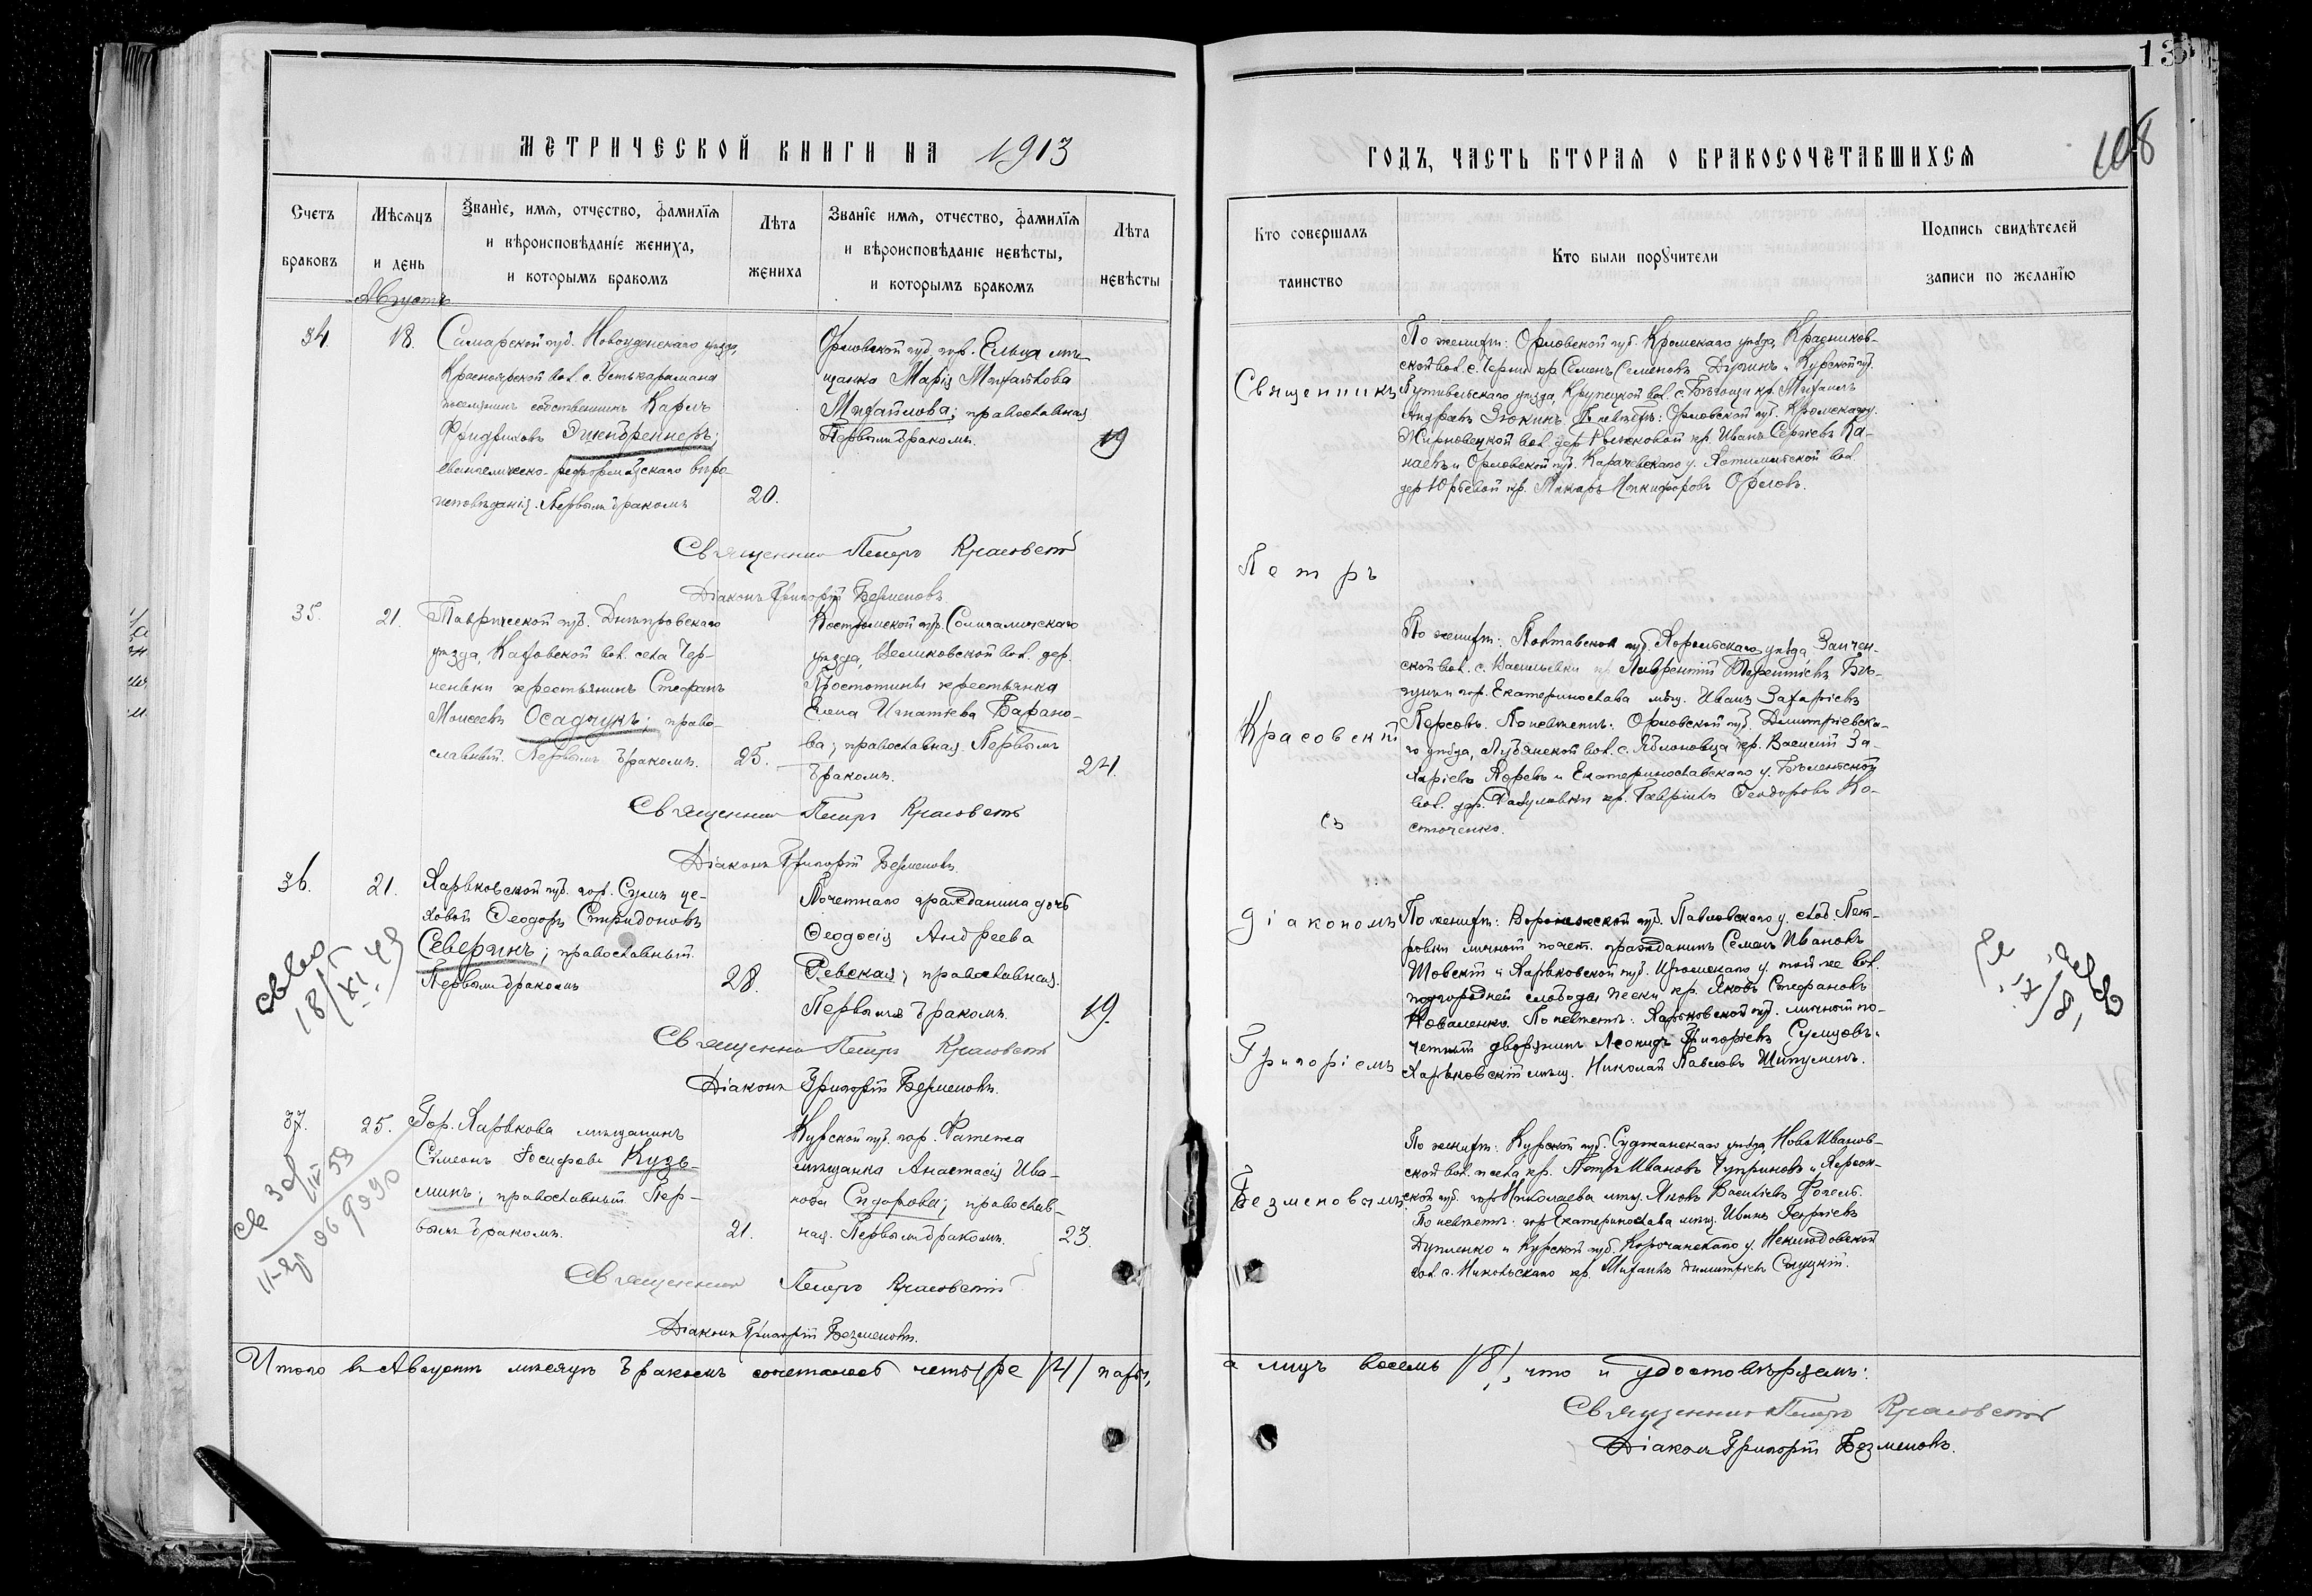 МЕТРИЧЕСКОЙ КНИГИ НА 1913
Счетъ браковъ
Мѣсяцъ и день
Званіе, имя, отчество, фамилія
и вѣроисповѣданіе жениха,
и которымъ бракомъ
Лѣта жениха
Званіе имя, отчество, фамилія
и вѣроисповѣданіе невѣсты,
и которымъ бракомъ
Лѣта невѣсты
Августъ
34. 18.
Самарской губ. Новоузенскаго уѣзда,
Красноярской вол. с. Устькарамана
поселянинъ собственникъ Карлъ
Фридриховъ
евангелическо-реформатскаго вѣро-
исповѣданія. Первымъ бракомъ
20.
Орловской губ. гор. Ельца мѣ-
щанка Марія Михайлова
Михайлова; православная
Первымъ бракомъ.
19
Священникъ Петръ Красовскій
Діаконъ Григорій Безменовъ
35. 21.
Таврической губ. Днѣпровскаго
уѣзда, Каховской вол. села Чер-
неньки крестьянинъ Стефанъ
Моисеевъ Осадчукъ; право-
славный. Первымъ бракомъ.
25.
Костромской губ. Солигаличскаго
уѣзда, Великовской вол. дер.
крестьянка
Елена Игнатьева Барано-
ва; православная. Первымъ
бракомъ.
24.
Священникъ Петръ Красовскій
Діаконъ Григорій Безменовъ.
36. 21.
Харьковской губ. гор. Сумъ це-
ховой Ѳеодоръ Спиридоновъ
Северинъ; православный.
Первымъ бракомъ
28.
Почетнаго гражданина дочь
Ѳеодосія Андреева
Ревская; православная.
Первымъ бракомъ.
19.
18/XI 49
Священникъ Петръ Красовскій
Діаконъ Григорій Безменовъ.
37. 25.
Гор. Харькова мѣщанинъ
Симеонъ Іосифовъ Кузь-
минъ; православный Пер-
вымъ бракомъ.
21.
Курской губ. гор. Фатежа
мѣщанка Анастасія Ива-
нова Сидорова; православ-
ная. Первымъ бракомъ.
23.
Священникъ Петръ Красовскій
Діаконъ Григорій Безменовъ.
Итого въ Августѣ мѣсяцѣ бракомъ сочеталось четыре /4/ пары,
13
108
ГОДЪ, ЧАСТЬ ВТОРАЯ О БРАКОСОЧЕТАВШИХСЯ
Кто совершалъ таинство
Кто были поручители
Подпись свидѣтелей записи по желанію
Священникъ
Петръ
Красовскій
съ
діакономъ
Григоріемъ
Безменовымъ
По женихѣ: Орловской губ. Кромскаго уѣзда, Красников-
ской вол. с. Черни кр. Семенъ Семеновъ и Курской губ.
Путивльскаго уѣзда, Крупецкой вол. с. кр. Михаилъ
Андреевъ Зюкинъ. По невѣстѣ: Орловской губ. Кромскаго у.
вол. дер. кр. Иванъ Сергѣевъ Ка-
наевъ и Орловской губ. Карачевскаго у. вол.
дер. Юрьевой кр. Макаръ Никифоровъ Орловъ.
По женихѣ: Полтавской губ. Хорольскаго уѣзда
ской вол. с. Васильевки кр. Лаврентій Терентіевъ
и гор. Екатеринослава мѣщ. Иванъ Захаріевъ
Персовъ. По невѣстѣ: Орловской губ. Дмитріевска-
го уѣзда, Лубянской вол. с. Яблоновца кр. Василій За-
харіевъ и Екатеринославскаго у.
вол. дер. кр. Гавріилъ Ѳеодоровъ Ко-
сточенко.
По женихѣ: Воронежской губ. Павловскаго у. слоб. Пет-
ровки личный почет. гражданинъ Семенъ Ивановъ
и Харьковской губ. у. той же вол.
подгородней слободы Пески кр. Яковъ Стефановъ
Коваленко. По невѣстѣ: Харьковской губ. личный по-
четный дворянинъ Леонидъ Григорьевъ Сумцовъ и
Харьковскій мѣщ. Николай Павловъ Шипулинъ.
По женихѣ: Курской губ. Суджанскаго уѣзда, Ново Иванов-
ской вол. и села кр. Петръ Ивановъ Чуприновъ и Херсон-
ской губ. гор. Николаева мѣщ. Яковъ Васильевъ
По невѣстѣ: гор. Екатеринослава мѣщ. Иванъ Георгіевъ
Дупленко и Курской губ. Корочанскаго у. Неклюдовской
вол. с. Никольскаго кр. Михаилъ Димитріевъ
а лицъ восемь /8/, что и удостовѣряемъ:
Священникъ Петръ Красовскій
Діаконъ Григорій Безменовъ.